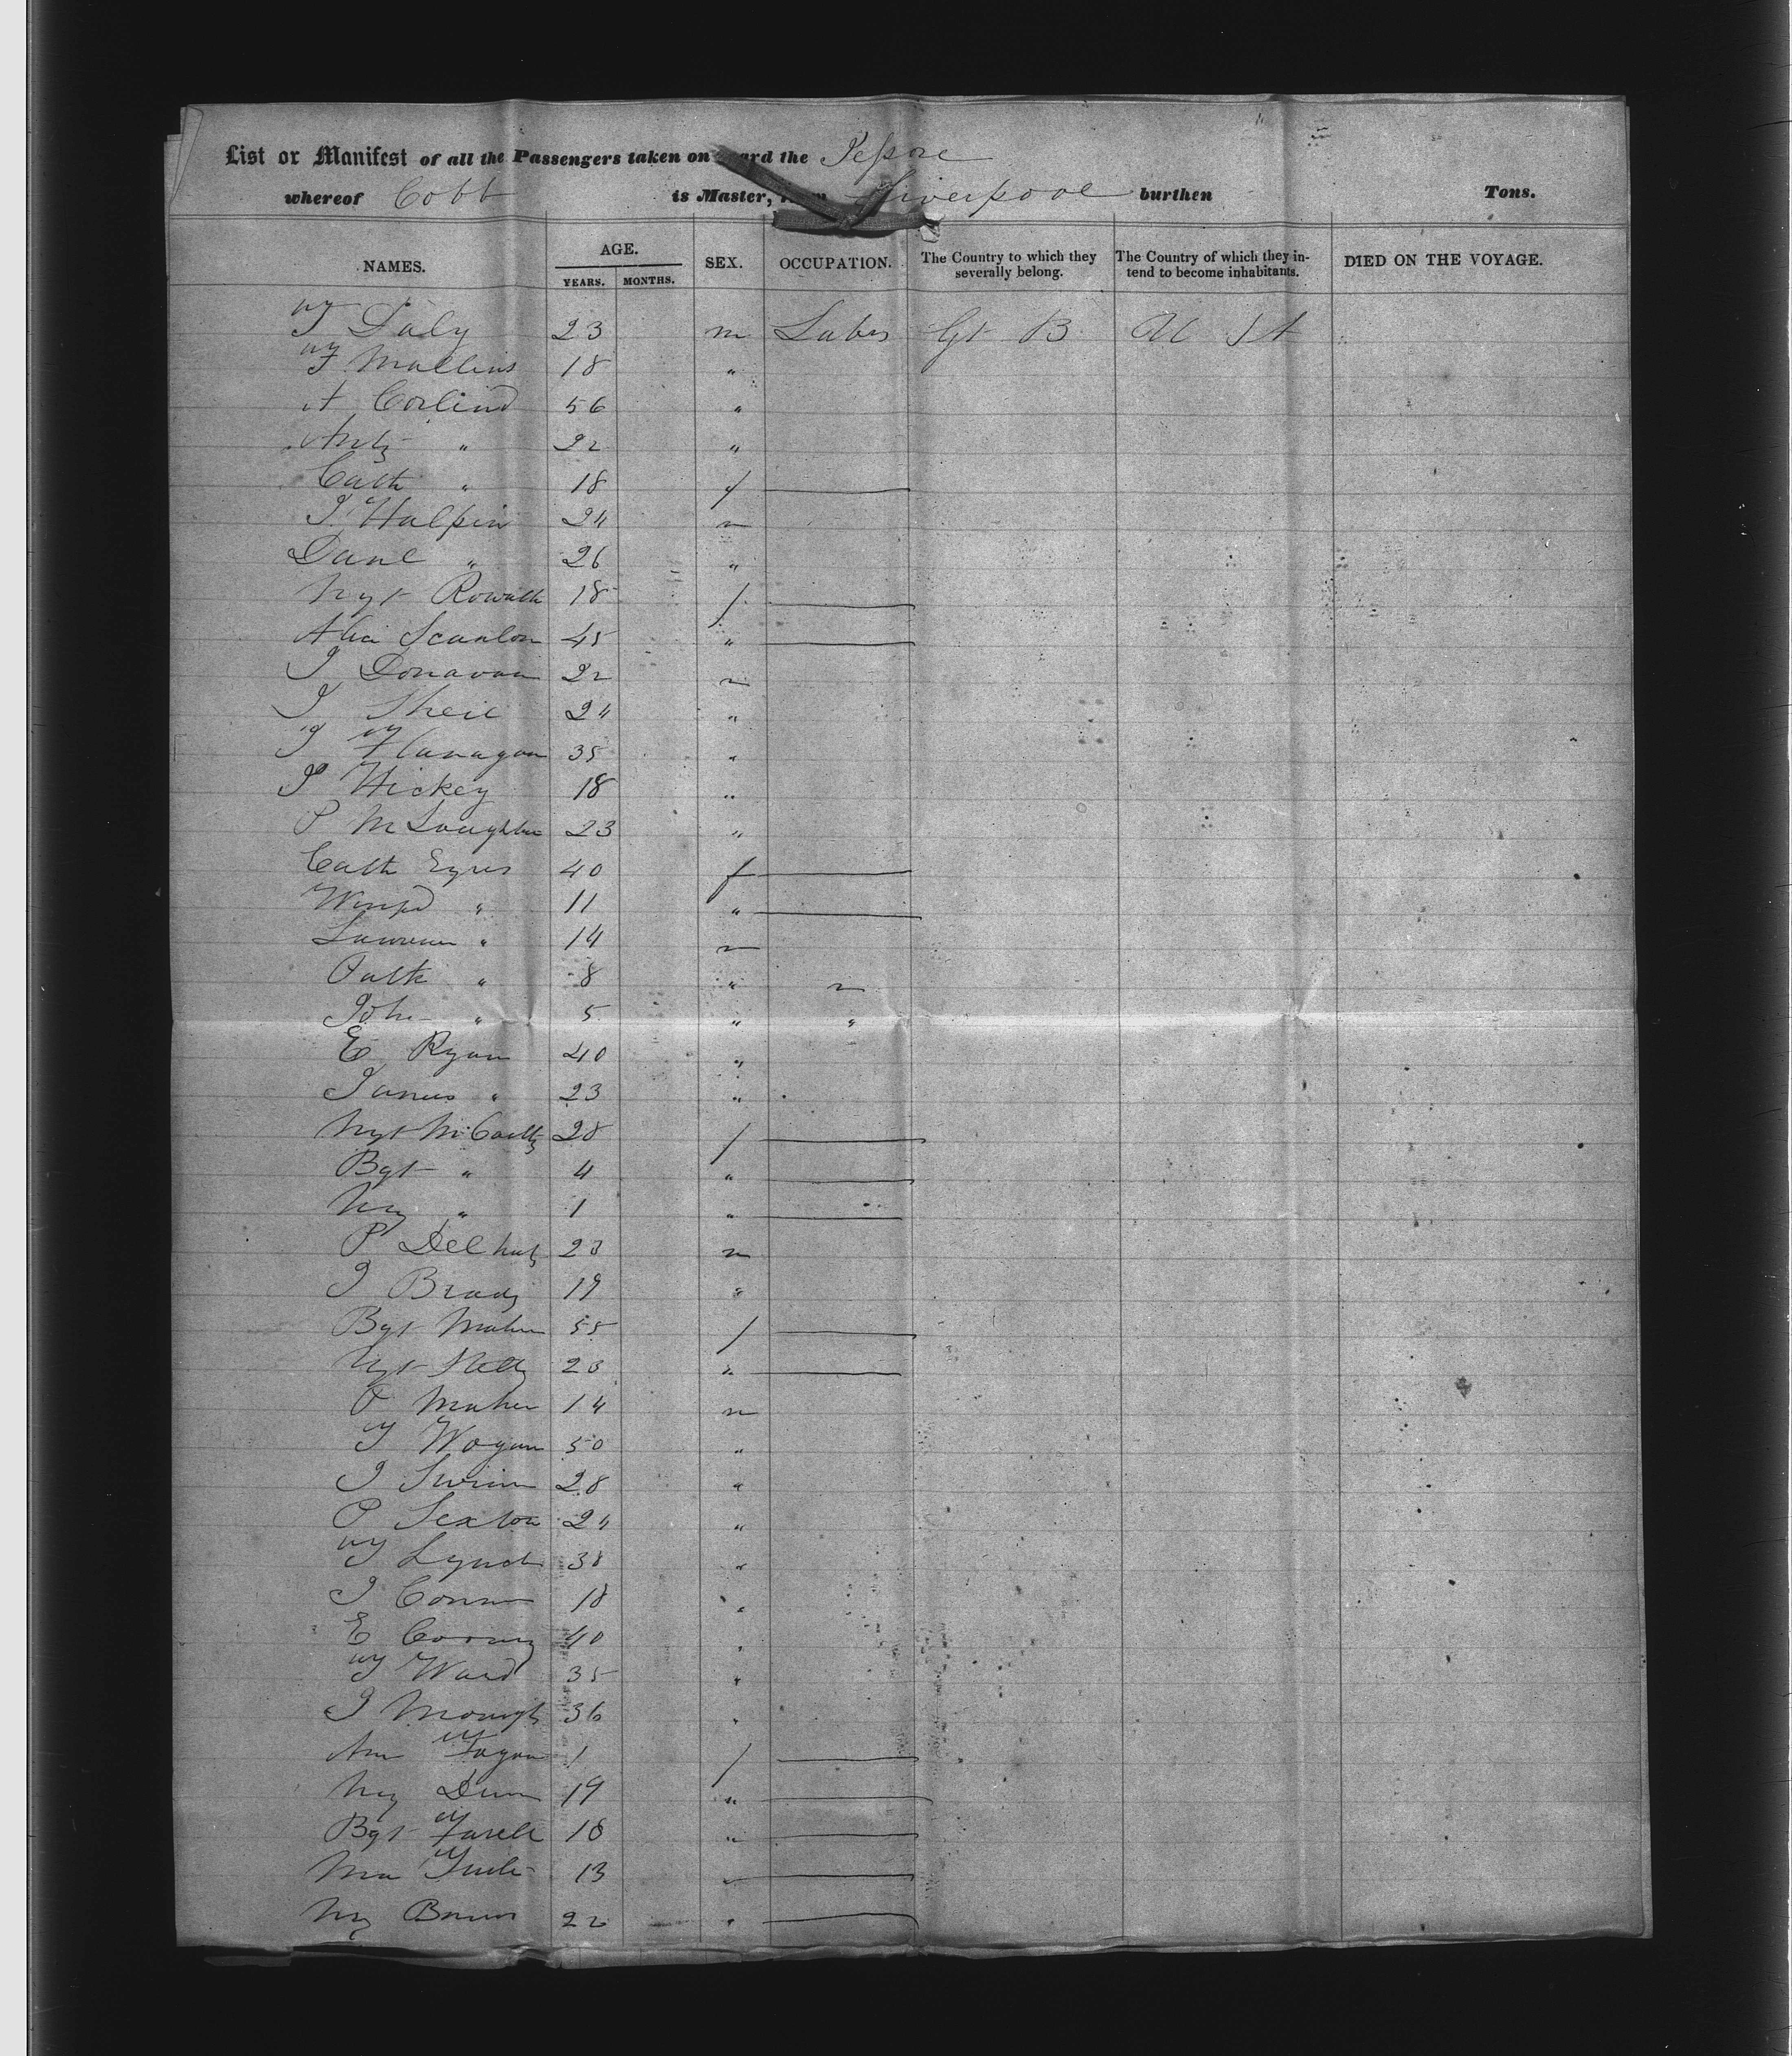 List or Manifest of all the Passengers taken on board the
whereof Cobb is Master, from Liverpool burthen Tons.
NAMES. AGE. YEARS. MONTHS. SEX. OCCUPATION. The Country to which they severally belong. The Country of which they intend to become inhabitants. DIED ON THE VOYAGE.
T Daly 23 m Labr Gt B U St
F Mullins 18 "
A 56 "
" 22 "
Cath " 18 f
J Halpin 24 m
Danl " 26 "
Mgt 18 f
Scanlon 45 "
J Donavan 22 m
J Sheil 24 "
J Flanagan 35 "
P Hickey 18 "
P McLaughlin 23 "
Cath Eyres 40 f
" 11 "
Lawrence " 14 m
Patk " 8 " "
John " 5 " "
E Ryan 40 "
James " 23 "
Mgt McCarthy 28 f
Bgt " 4 "
My " 1 "
P 23 m
J Brady 19 "
Bgt Maher 55 f
Mgt 23 "
P Maher 14 m
T Wogan 50 "
J 28 "
P Sexton 24 "
T Lynch 38 "
J Connor 18 "
E Cooney 40 "
T Ward 35 "
J 36 "
Ann Fagan 1 f
My Dunn 19 "
Bgt Farell 18 "
13 "
My 22 "